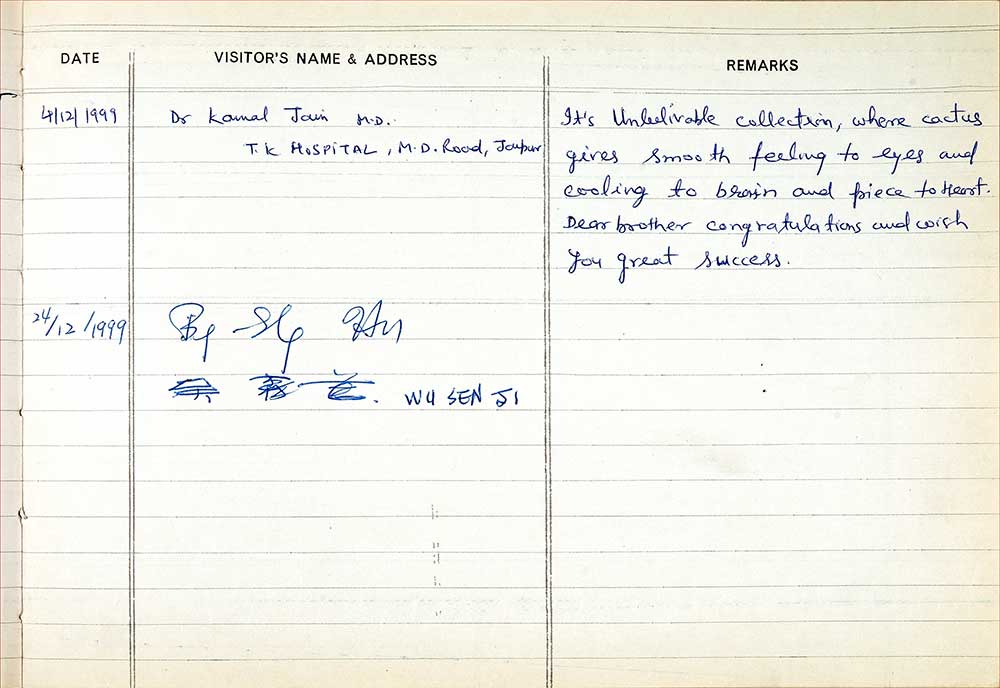 DATE
VISITOR'S NAME & ADDRESS
REMARKS
4/12/1999
Dr Kamal Jain M.D.
T.K HOSPITAL, M.D. Road, Jaipur
It's Unbelivable collection, where cactus
gives smooth feeling to eyes and
cooling to brain and piece to Heart.
Dear brother congratulations and wish
you great success.
24/12/1999
WU SEN JI